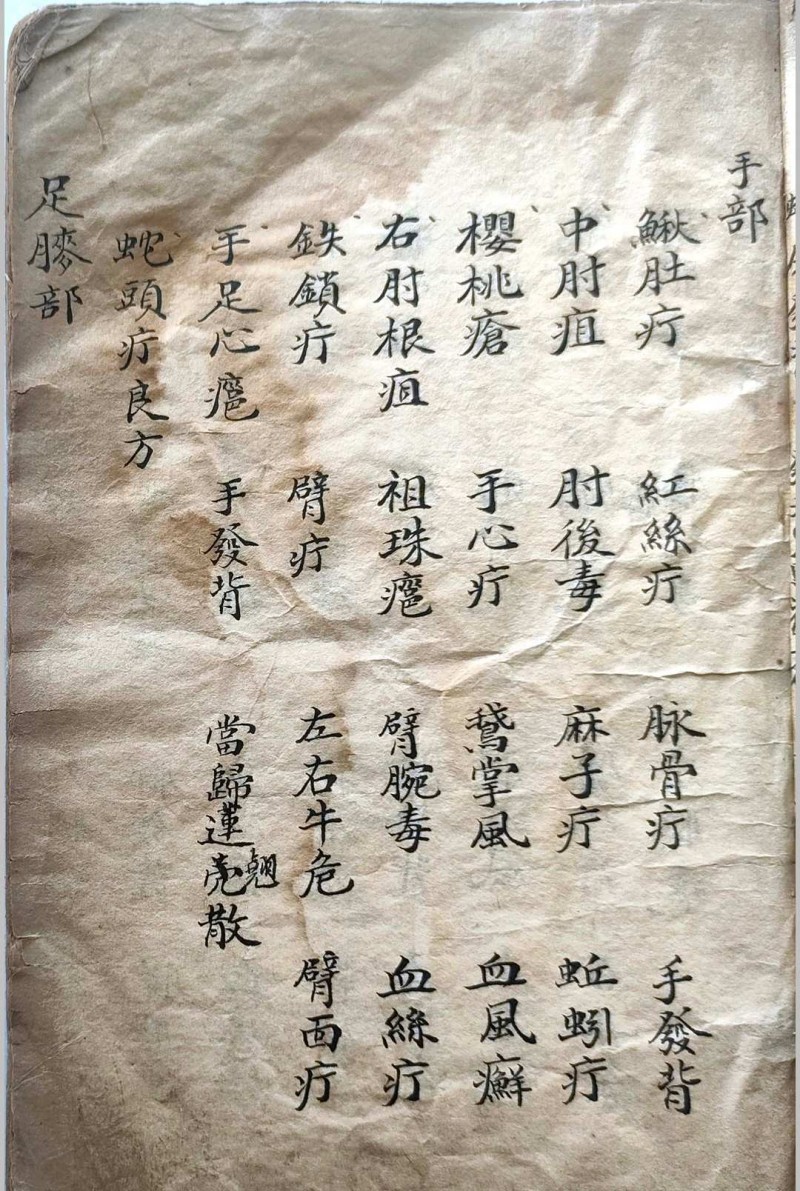 手部
鰍肚疔 紅絲疔 脉骨疔 手發背
中肘疽 肘後毒 麻子疔 蚯蚓疔
櫻桃瘡 手心疔 鵞掌風 血風癬
右肘根疽 祖珠㿈 臂腕毒 血絲疔
鉄鎖疔 臂疔 左右牛危 臂面疔
手足心㿈 手發背 當歸蓮壳翹散
蛇頭疔良方
足部